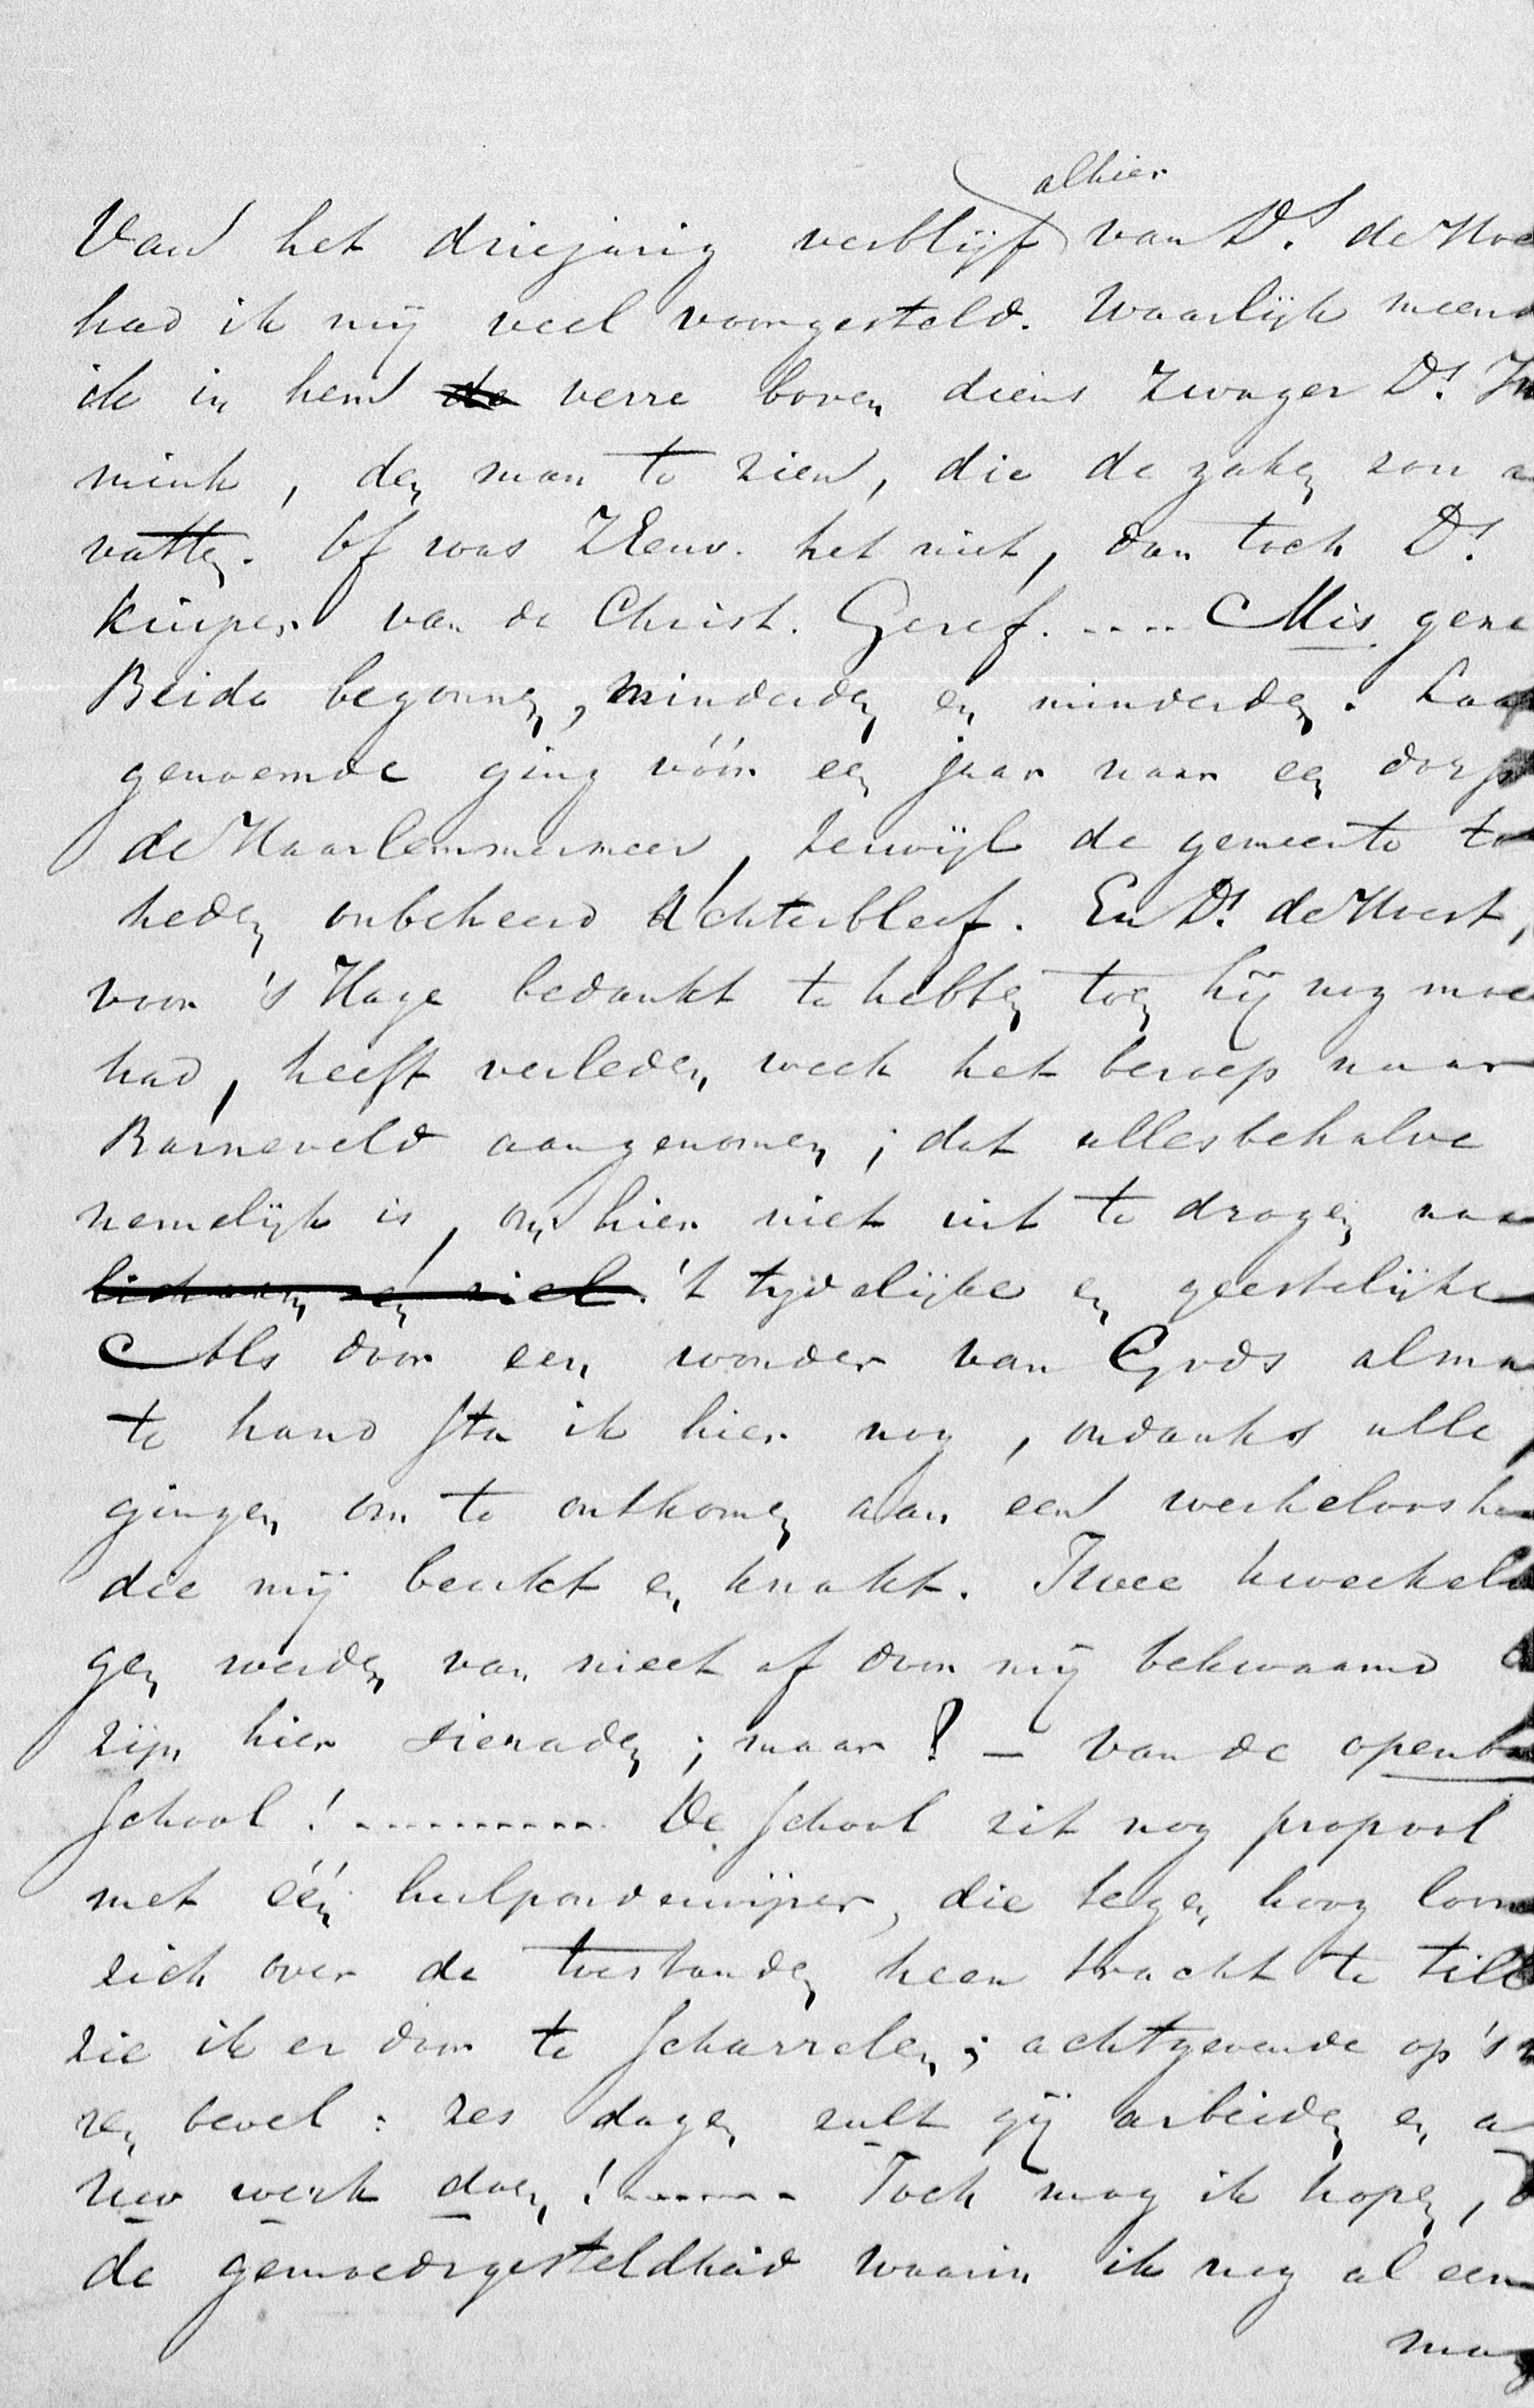 alhier
Van het driejarig verblijf van Ds. de Hoe
had ik mij veel voorgesteld. Waarlijk meend
ik in hem de verre boven diens zwager Ds.
mink, den man te zien, die de zaken zou a
vatten. Of was ZEeuw. het niet, dan toch Ds.
Kuiper van de Christ. Geref. .... Mis gere
Beide begonnen, minderden en minderden. Laa
genoemde ging vóór een jaar naar een dorp
de Haarlemmermeer, terwijl de gemeente to
heden onbeheerd achterbleef. En Ds. de Hoest,
voor 's Hage bedankt te hebben toen hij nog moe
had, heeft verleden week het beroep naar
Barneveld aangenomen; dat allesbehalve
nemelijk is, om hier niet uit te drogen naa
lichaam en ziel. 't tijdelijke en geestelijke
Als door een wonder van Gods alma
te hand sta ik hier nog, ondanks alle
gingen om te ontkomen aan een werkelooshe
die mij beukt en knakt. Twee kweekeli
gen werden van niet af door mij bekwaamd
zijn hier sieraden; maar! – van de openba
school! .......... De school zit nog propvol
met één hulponderwijzer, die tegen hoog loon
zich over de toestanden heen tracht te till
zie ik er door te scharrelen; achtgevende op 's
ren bevel: zes dagen zult gij arbeiden en a
uw werk doen! ...... Toch mag ik hopen, d
de gemoedsgesteldheid waarin ik nog al een
ma